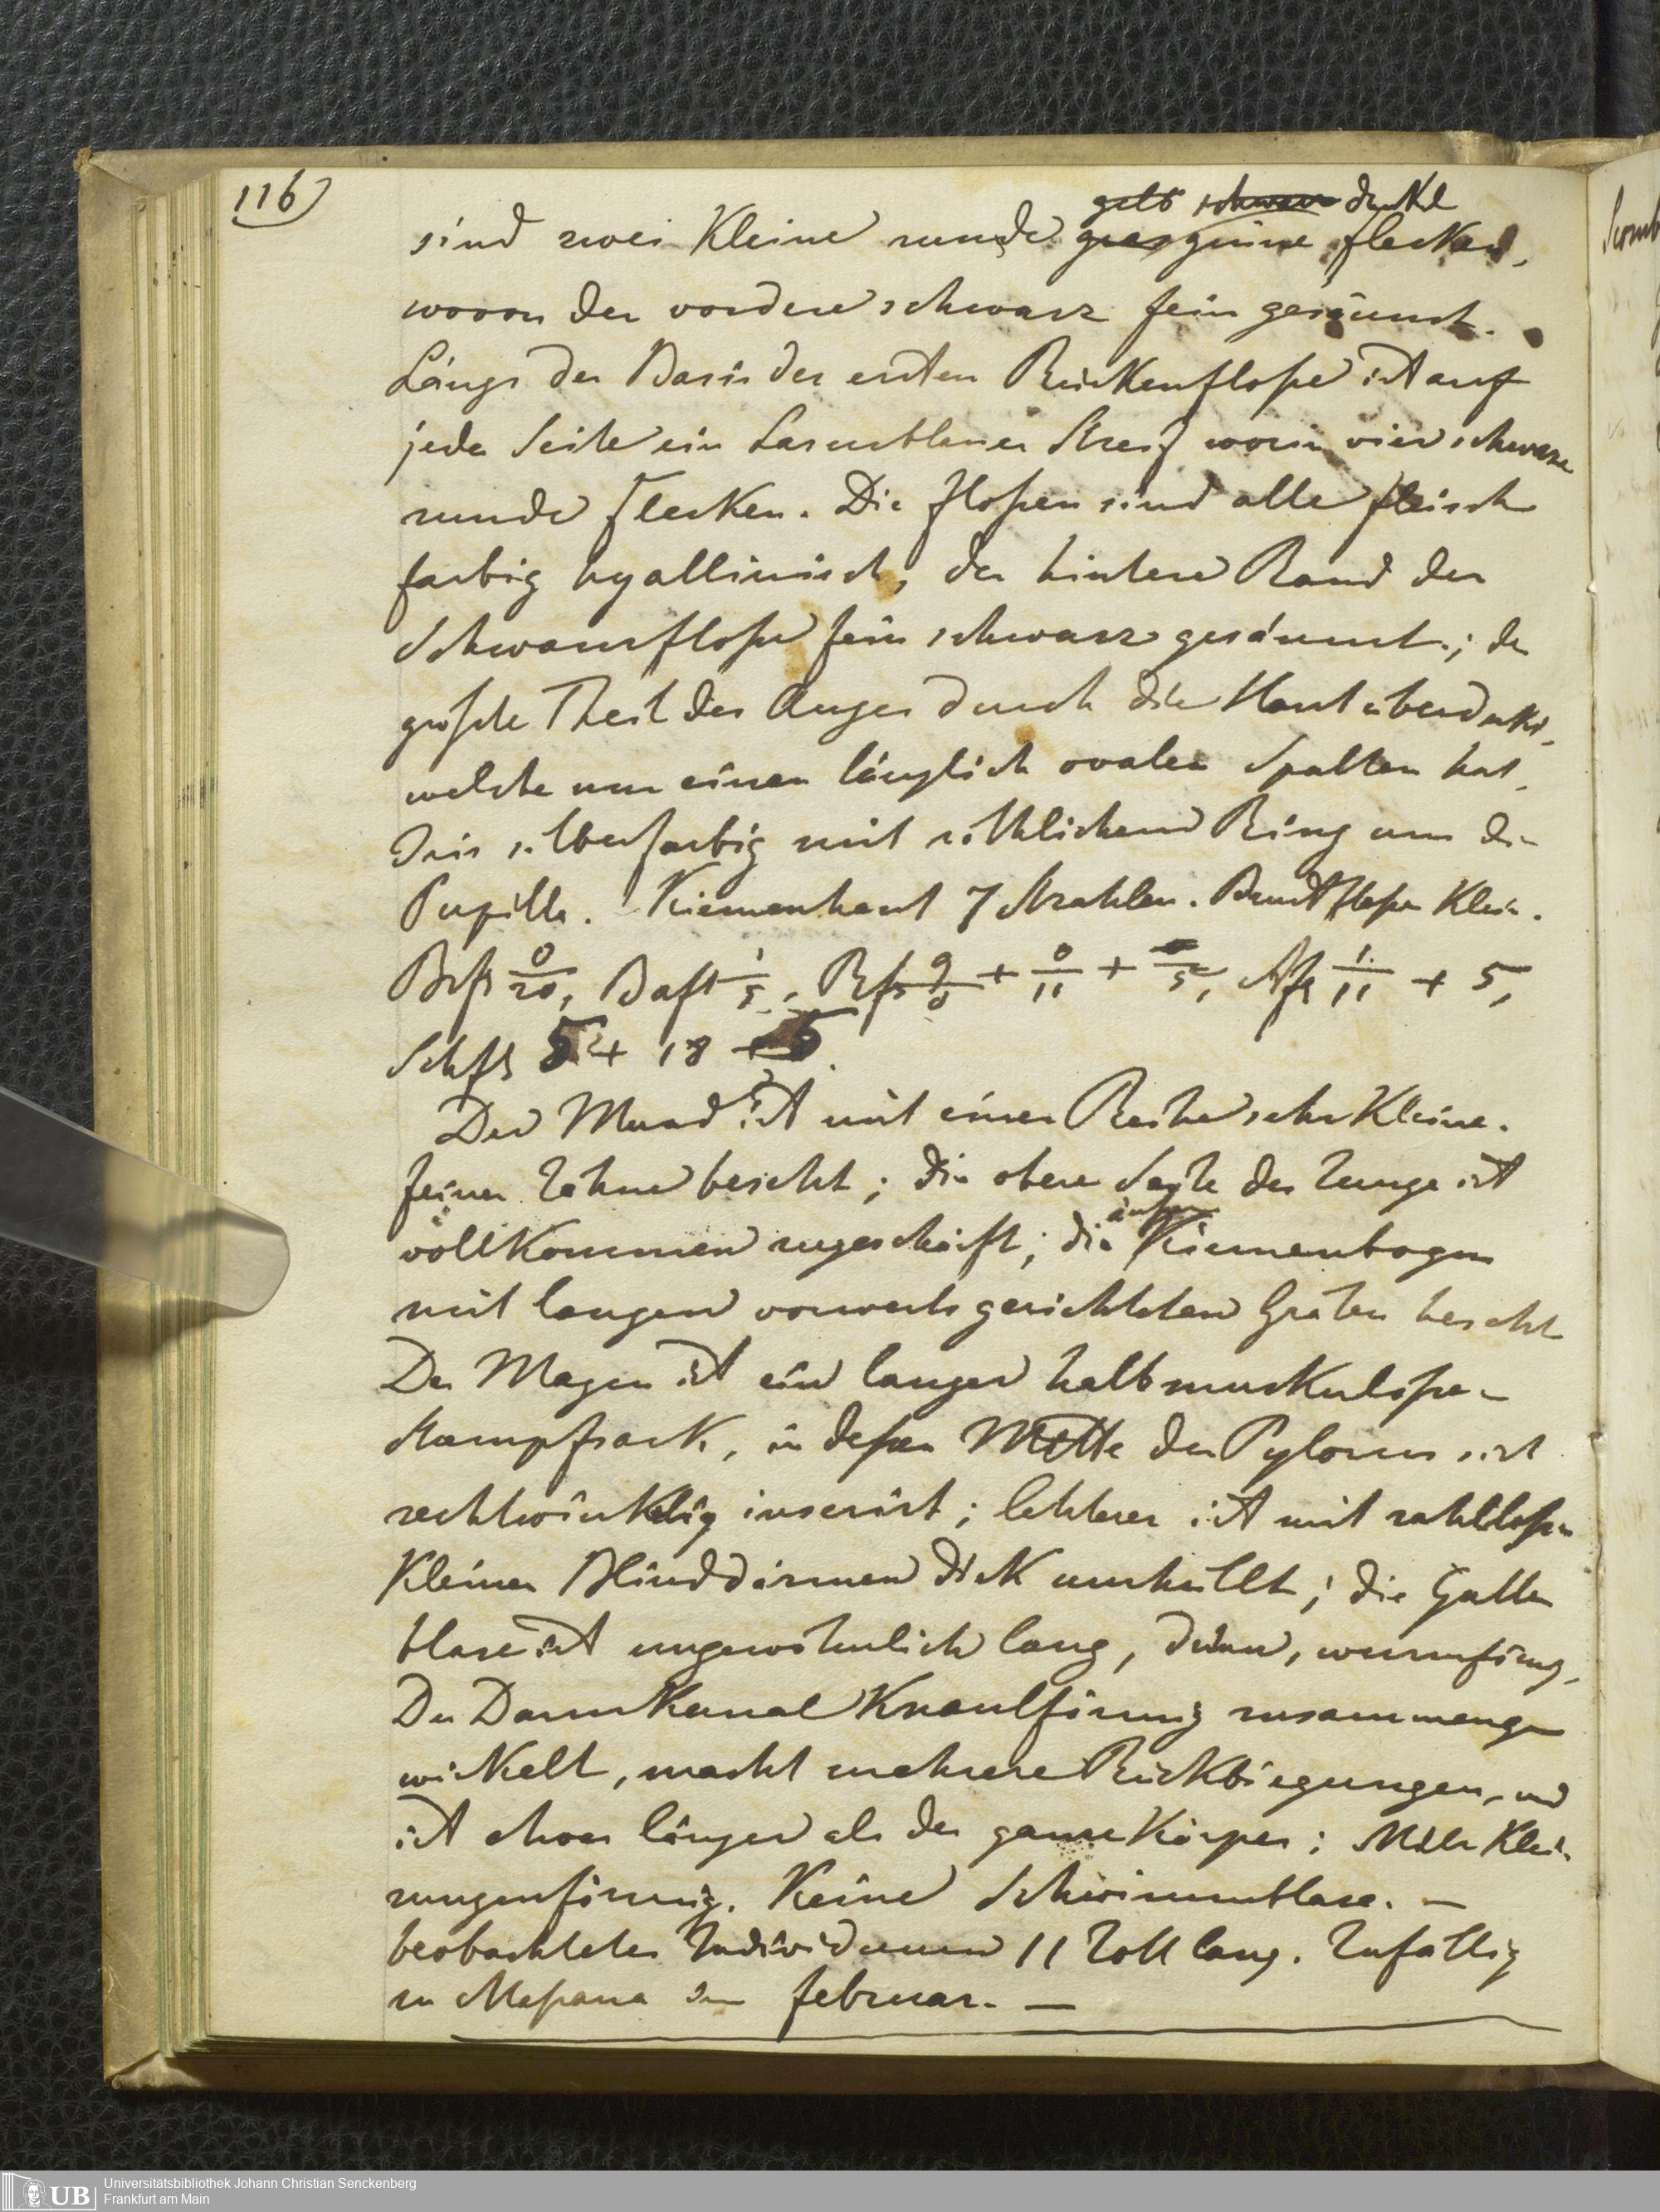 116
gelb schwarz dunkl
sind zwei kleine runde grasgrüne flecken,
wovon der vordere schwarz fein gesäumt.
Längs der Basis der ersten Rückenfloße ist auf
jeder Seite ein Lasurblauer Streif worin vier schwarze
runde Flecken. Die floßen sind alle fleisch
farbig hyallinisch, der hintere Rand der
Schwanzfloße fein schwarz gesäumt; der
großte Theil des Auges durch die Haut uberdeckt,
welche nur einen länglich ovalen Spalten hat,
Iris silberfarbig mit röthlichem Ring um die
Pupille. Kiemenhaut 7 Strahlen. Brustfloße klein.
Brfl 0/20, Bafl 1/5, Rfl 9/0 + 0/11 + 0/5, Afl 1/11 + 5,
Schfl 5 + 18 + 5.
Der Mund ist mit einer Reihe sehr kleine.
feiner Zähne besetzt; die obere Seite der Zunge ist
äußern
vollkommen ungeschärft; die Kiemenbogen
mit langen vorwerts gerichteten Gräten besetzt
Der Magen ist ein langer halbmuskuloßer
Stumpfsack, in deßen Mitte der Pylorus sich
rechtwinkelig inserirt; letzterer ist mit zahlloßen
kleinen Blinddärmen dick umhüllt; die Gallen
blase ist ungewöhnlich lang, dünn, wurmförmig,
Der Darmkanal knaulförmig zusammenge
wickelt, macht mehrere Rückbiegungen, und
ist etwas länger als der ganze Körper; Milz klein
zungenförmig. Keine Schwimmblase. —
beobachtetes Individuum 11 Zoll lang. Zufällig
zu Maßaua im februar. —
Scomb
UB Universitätsbibliothek Johann Christian Senckenberg
Frankfurt am Main